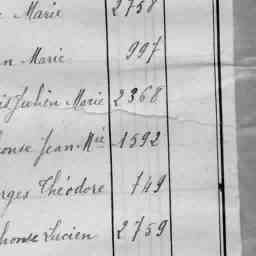 Marie 2758
n Marie 997
is Julien Marie 2368
onse Jean Mie 1592
rges Théodore 749
honse Lucien 2759